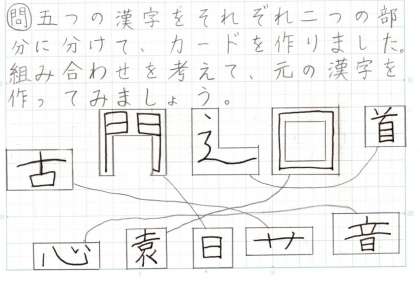 問 五つの漢字をそれぞれ二つの部
分に分けて、カードを作りました。
組み合わせを考えて、元の漢字を
作ってみましょう。
古 門 辶 囗 首
心 袁 日 艹 音